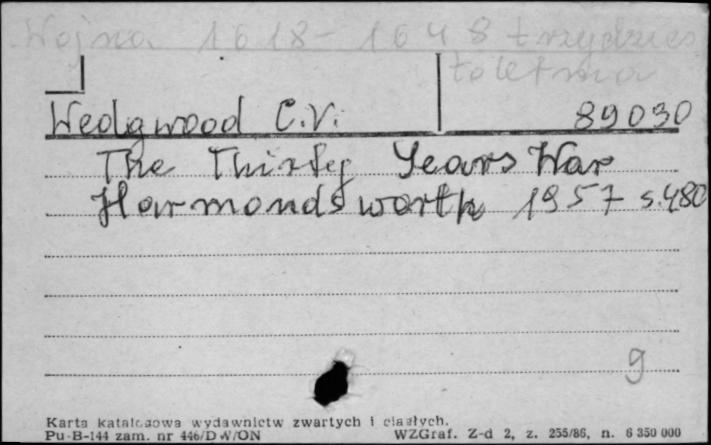 Wojna 1618-1648 trzydzies
toletnia
Wedgwood C.V. 89030
The Thirty Years War
Harmondsworth 1957 s.480
g
Karta katalogowa wydawnictw zwartych i ciągłych.
Pu-B-144 zam. nr 446/DW/ON WZGraf. Z-d 2, z. 255/86, n. 6 350 000